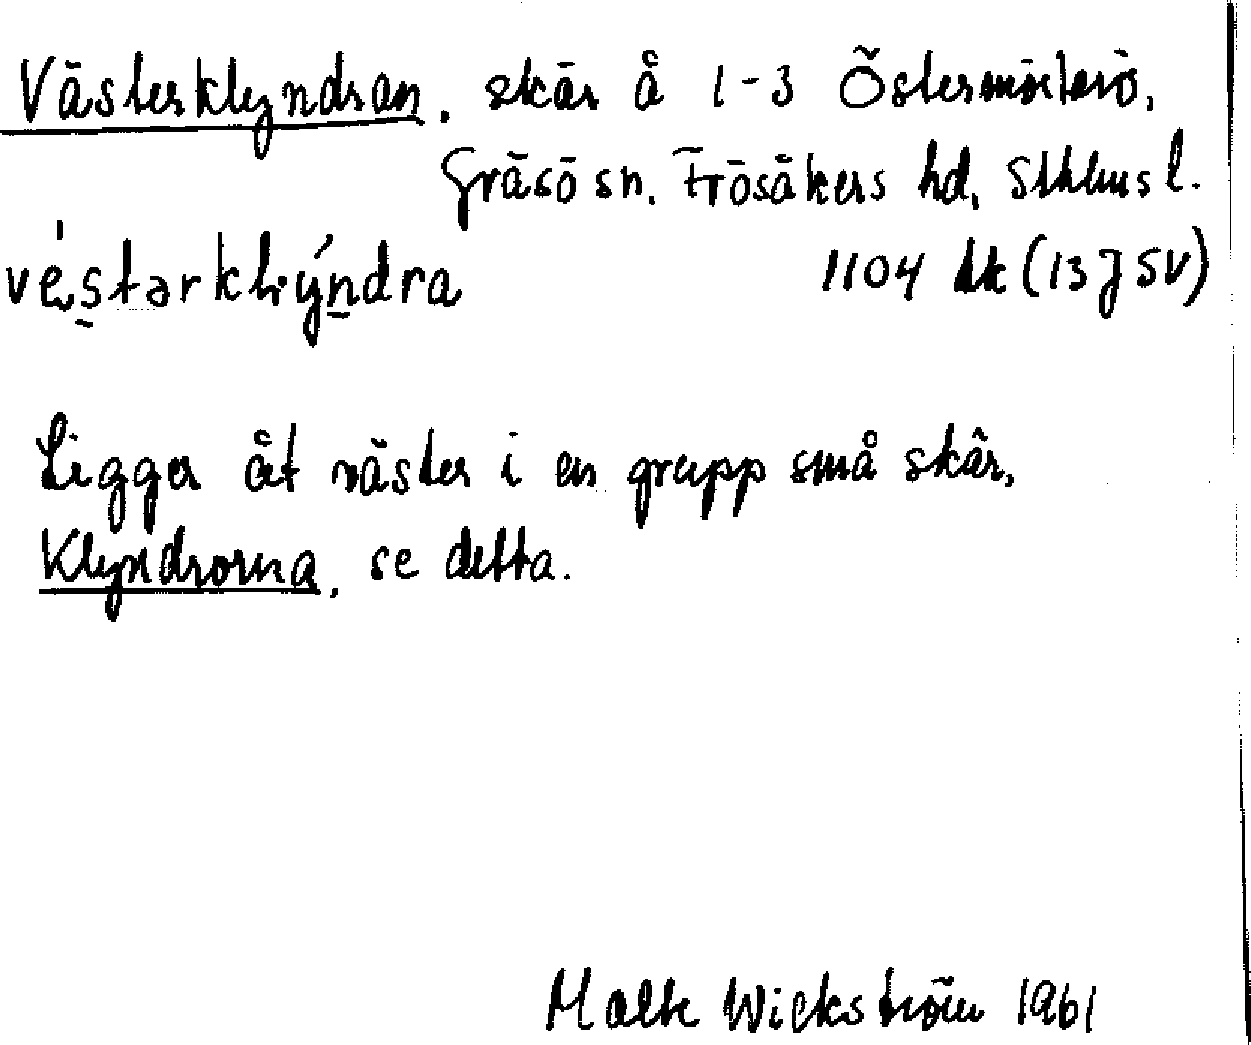 Västerklyndran, skär å 1-3 Östermörtarö,
Gräsö sn. Frösåkers hd, Sthlms l.
1104 dk (13 J SV)
Ligger åt väster i en grupp små skär,
Klyndrorna, se detta.
Malte Wickström 1961